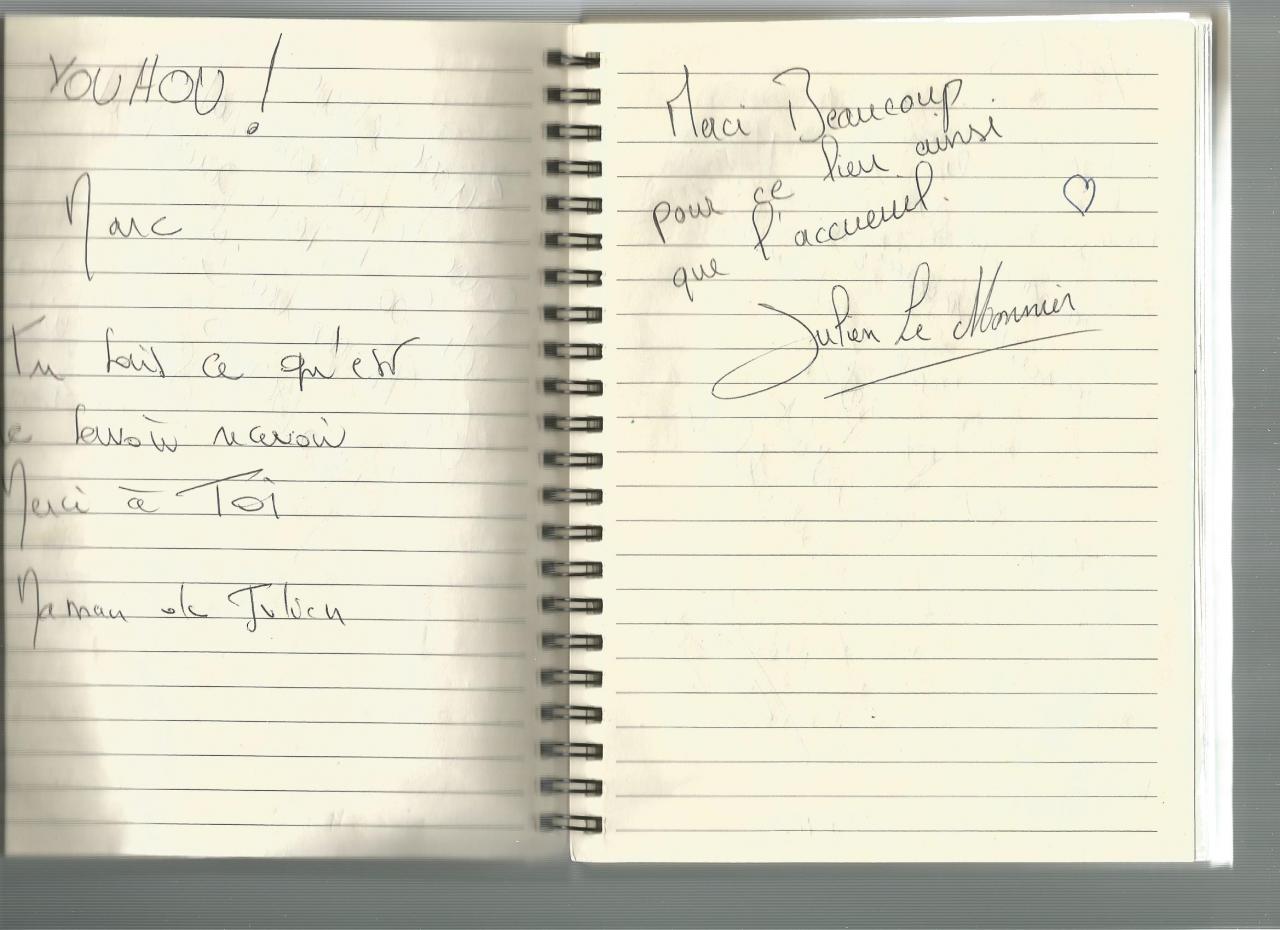 YOUHOU !
Marc
Tu sais ce qu'est
le savoir recevoir
Merci à Toi
Maman de Julien
Merci Beaucoup
pour ce lieu ainsi
que l'accueuil.
Julien Le Monnier